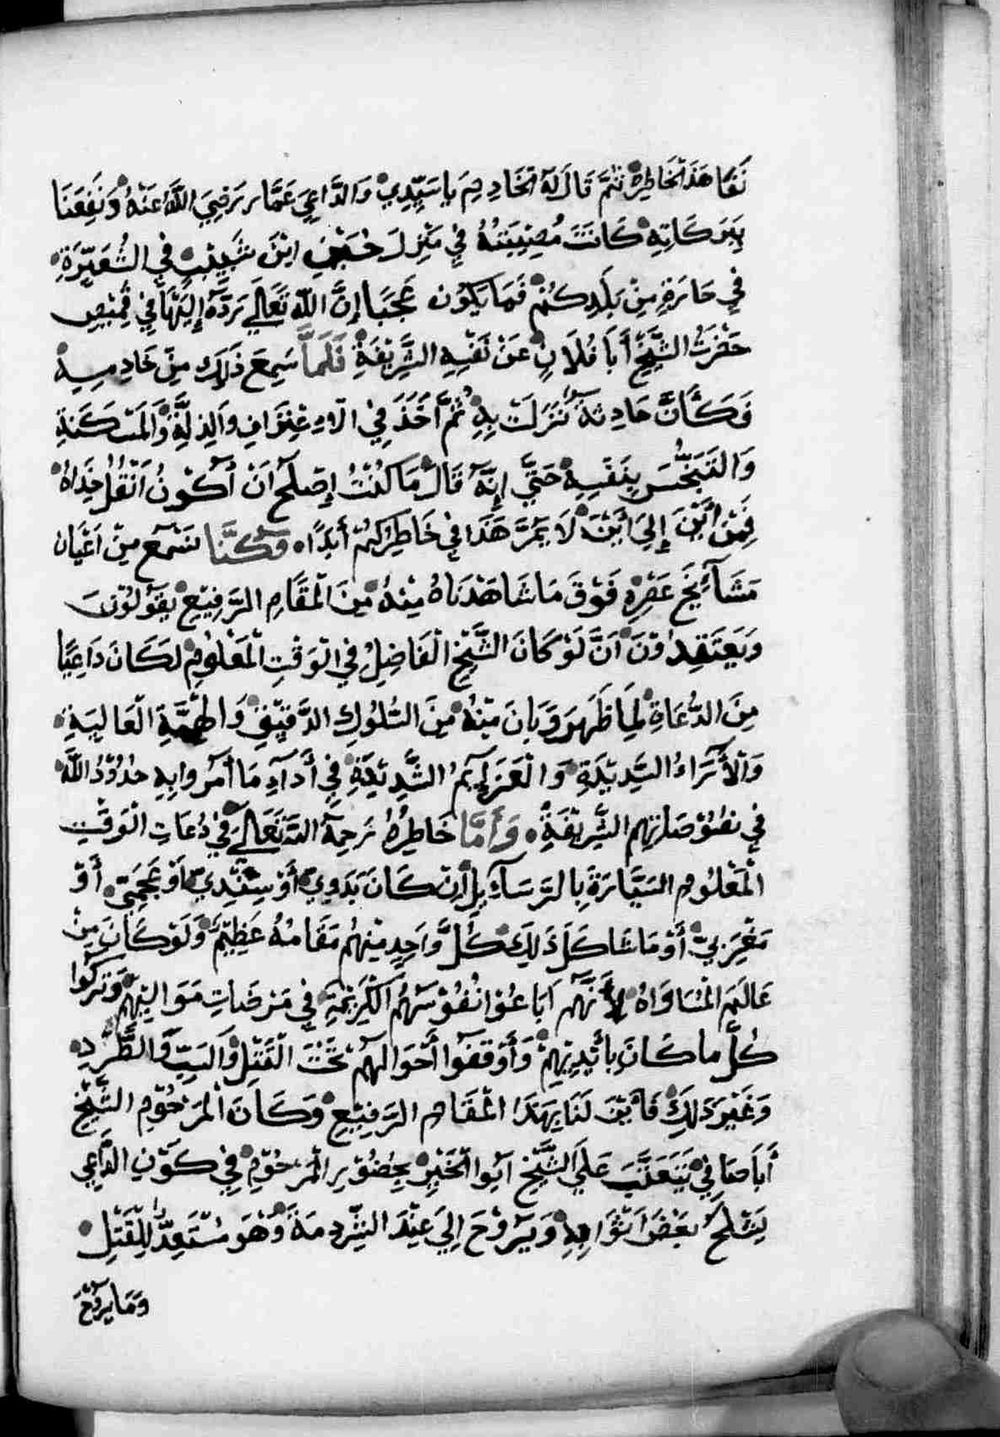 نَقَا هَذَا الخَاطِرِ ثُمَّ قَالَ لَهُ الخَادِم يا سَيِّدِيْ وَالدَّاعِي عَمَّار رَضِيَ اللَّهُ عَنْهُ وَنَفَعَنَا
بِبَرَكَاتِهِ كَانَتَ مُصِيْبَتُهُ فِي مَنْزِلَ حُسَيْنِ ابْنَ شَبِيْبٍ فِي الشُّعَيِّرَةِ
فِي حَارَةٍ مِنْ بَلَدِكُمْ فَمَا يَكُوْن عَجَبَا إِنَّ اللّٰه تَعَالَي رَدَّهُ إِلَيْهَا فِي قَمِيْصِ
حَضْرَتُ الشَّيْخْ أَبَا فُلَانٍ عَنْ نَفْسِهِ الشَّرِيْفَةِ فَلَمَّا سَمِعَ ذَلِكَ مِنْ خَادِمِيهِ
فَكَأَنَّ حَادِثَةٌ نَزَلَتْ بِهِ ثُمَّ أَخَذَ فِي الْاِعْتِرَافِ وَالذِلَّةِ وَالْمَسْكَنَةِ
وَالتَبَخُّسَ بِنَفْسِهِ حَتَّي إِنَّهُ قَالَ مَا كُنْتُ إِصْلَحْ اَنْ أَكُوْنُ اَنْقُلُ حِذَاهُ
فَمِنْ أَيْنَ إِلَي أَيْنَ لَا يَمُرَّ هَذَا فِي خَاطِرِكُمْ أَبَدًا وَكُنَّا نَسْمَعْ مِنْ اَعْيَان
مَشَآئِخَ عَصْرِهِ فَوْقَ مَا شَاهَدْنَاهُ مِنْهُ مِنَ الْمَقَامِ الرَفِيْعِ يَقُوْلُوْنَ
وَيَعْتَقِدُوْنَ اَنَّ لَوْ كَانَ الشَّيْخ الْفَاضِلْ فِي الْوَقْتِ الْمَعْلُوْمِ لَكَانَ دَاعِيًا
مِنَ الدُّعَاةِ لِمَا ظَهَرَ وَبَانَ مِنْهُ مِنَ السُّلُوكِ الدَّقِيْقِ وَالهِمَّةِ الْعَالِيَةِ
وَالْأَرَاءِ السَّدِيْدَةِ وَالْعَزَايِمُ الشَّدِيْدَةِ فِي أَدَآءِ مَا أُمِرُوا بِهِ حُدُوْدُ اللَّه
فِي نُصُوْصَاتِهِم الشَّرِيْفَةِ وَأَمَّا خَاطِرُهُ رَحِمَهُ اللَّه تَعَالَي فِي دُعَاتِ الْوَقْتِ
الْمَعْلُوْم السَيَّارَةَ بِالرَسَآئِلِ إِنْ كَانَ بَدَوِيّ أَوْ سِنْدِيّ اَوْ عَجَمِيّ أَوْ
مَغْرِبِيّ أَوْ مَا شَاكَلَ ذَلِكَ كُلَّ وَاحِدٍ مِنْهُم مَقَامُهُ عَظِيْمٌ وَلَوْ كَانَ مِنْ
عَالَمِ الْمُسَاوَاهْ لِأَنَّهُم اَبَاعُوْا نُفُوْسَهُمُ الْكَرِيْمَةِ فِي مَرْضَاتِ مَوَالِيْهِمْ وَتَرَكُوا
كُلَّ مَا كَانَ بِأَيْدِيْهِمْ وَأَوْقَفُوْا أَحْوَالَهُم تَحْتَ الْقَتْلِ وَالسَبِّ وَالطَّرْدِ
وَغَيْرَ ذَلِكَ فَأَيْنَ لَنَا بِهَذَا الْمَقَام الرَفِيْعِ وَكَانَ الْمَرْحُوْم الشَّيْخ
أَبَا صَافِيْ يَتَعَتَّبَ عَلَي الشَّيْخ اَبُوا الْخَيْرِ بِحُضُوْرِ الْمَرْحُوْمْ فِي كَوْنِ الدَّاعِي
يَشْلَحُ بَعْضَ اَثْوَابِهِ وَيَرُوْحَ اِلَي عِنْدَ الشِّرْدِمَةِ وَهُوَ مُسْتَعِدًّا لِلْقَتْلِ
وَمَا يَرُوْحْ